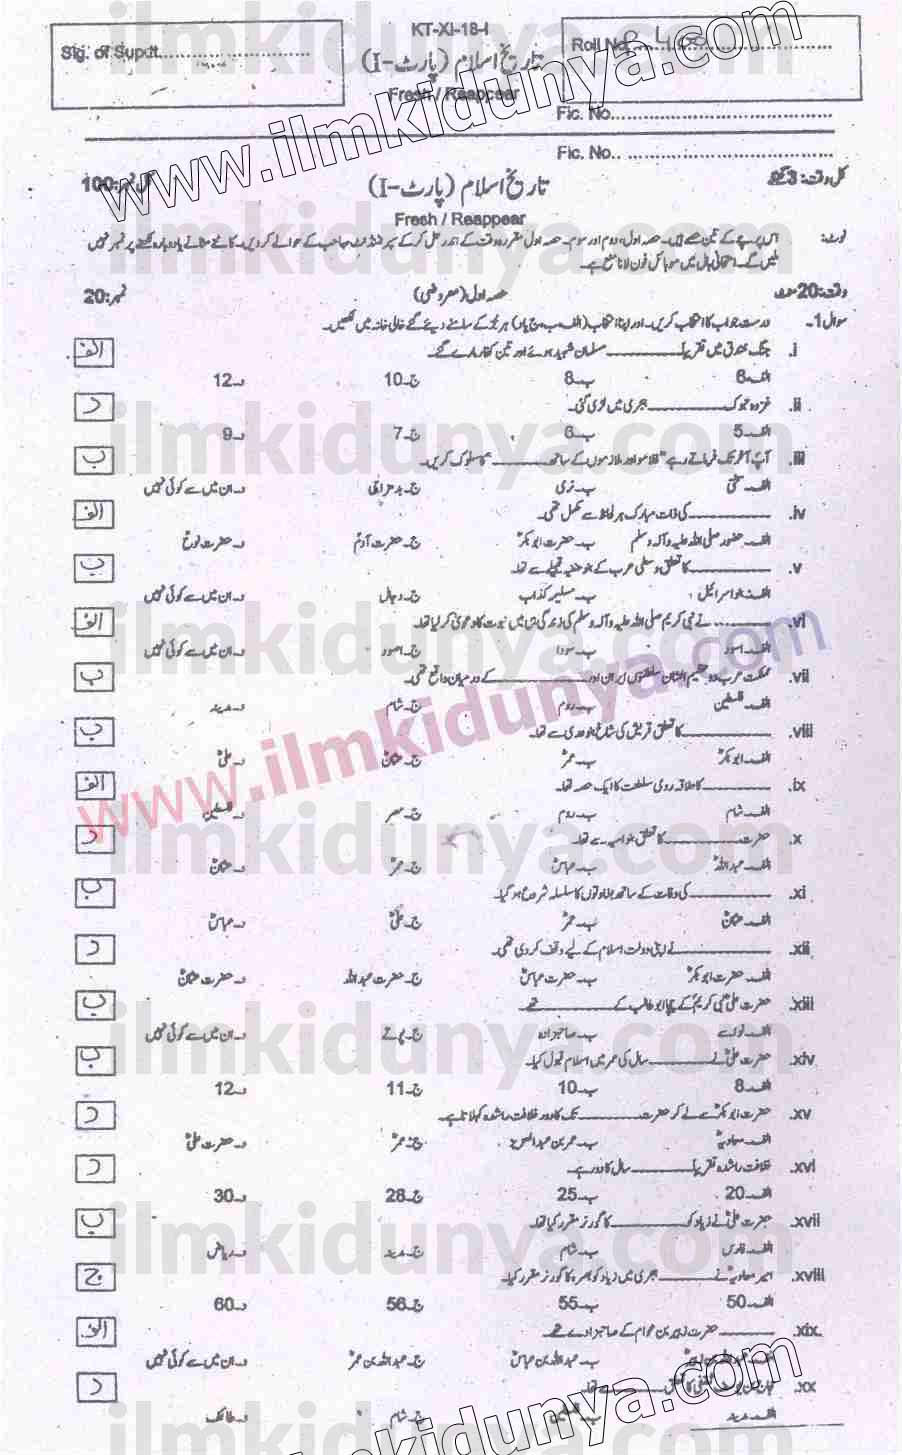 KT-XI-18-I
Sig. of Supdt.
تاریخ اسلام (پارٹ-I)
Roll No.
Fresh / Reappear
Fic. No.
Fic. No.
کل وقت: 3 گھنٹے
تاریخ اسلام (پارٹ-I)
کل نمبر: 100
Fresh / Reappear
نوٹ: اس پرچے کے تین حصے ہیں۔ حصہ اول، دوم اور سوم۔ حصہ اول مقررہ وقت کے اندر حل کر کے سپرنٹنڈنٹ صاحب کے حوالے کر دیں۔ کاٹنے مٹانے یا دوبارہ لکھنے پر نمبر نہیں
ملیں گے۔ امتحانی ہال میں موبائل فون لانا منع ہے۔
وقت: 20 منٹ حصہ اول (معروضی) نمبر: 20
سوال 1۔ درست جواب کا انتخاب کریں۔ اور اپنا انتخاب (الف، ب، ج یا د) ہر جز کے سامنے دیئے گئے خالی خانہ میں لکھیں۔
i. جنگ خندق میں تقریباً ________ مسلمان شہید ہوئے اور تین کفار مارے گئے۔ الف
الف۔ 6 ب۔ 8 ج۔ 10 د۔ 12
ii. غزوہ تبوک ________ ہجری میں لڑی گئی۔ د
الف۔ 5 ب۔ 6 ج۔ 7 د۔ 9
iii. آپؐ آخر تک فرماتے رہے "غلاموں اور ملازموں کے ساتھ ________" کا سلوک کریں۔ ب
الف۔ سختی ب۔ نرمی ج۔ بد مزاجی د۔ ان میں سے کوئی نہیں
iv. ________ کی ذات مبارک ہر لحاظ سے مکمل تھی۔ الف
الف۔ حضور صلی اللہ علیہ وآلہ وسلم ب۔ حضرت ابوبکرؓ ج۔ حضرت آدمؑ د۔ حضرت نوحؑ
v. ________ کا تعلق وسطی عرب کے بنو حنیفہ قبیلے سے تھا۔ ب
الف۔ بنو اسرائیل ب۔ مسلیمہ کذاب ج۔ دجال د۔ ان میں سے کوئی نہیں
vi. ________ نے نبی کریم صلی اللہ علیہ وآلہ وسلم کی زندگی ہی میں نبوت کا دعویٰ کر لیا تھا۔ الف
الف۔ اسود ب۔ سودا ج۔ اسور د۔ ان میں سے کوئی نہیں
vii. مملکت عرب دو عظیم الشان سلطنتوں ایران اور ________ کے درمیان واقع تھی۔ ب
الف۔ فلسطین ب۔ روم ج۔ شام د۔ مدینہ
viii. ________ کا تعلق قریش کی شاخ بنو عدی سے تھا۔ ب
الف۔ ابوبکرؓ ب۔ عمرؓ ج۔ عثمانؓ د۔ علیؓ
ix. ________ کا علاقہ رومی سلطنت کا ایک حصہ تھا۔ الف
الف۔ شام ب۔ روم ج۔ مصر د۔ فلسطین
x. حضرت ________ کا تعلق بنو امیہ سے تھا۔ د
الف۔ عبداللہؓ ب۔ عباسؓ ج۔ عمرؓ د۔ عثمانؓ
xi. ________ کی وفات کے ساتھ بغاوتوں کا سلسلہ شروع ہو گیا۔ ب
الف۔ عثمانؓ ب۔ عمرؓ ج۔ علیؓ د۔ عباسؓ
xii. ________ نے اپنی دولت اسلام کے لیے وقف کر دی تھی۔ د
الف۔ حضرت ابوبکرؓ ب۔ حضرت عباسؓ ج۔ حضرت عبداللہ د۔ حضرت عثمانؓ
xiii. حضرت علیؓ نبی کریمؐ کے چچا ابو طالب کے ________ تھے۔ ب
الف۔ نواسے ب۔ صاحبزادہ ج۔ پوتے د۔ ان میں سے کوئی نہیں
xiv. حضرت علیؓ نے ________ سال کی عمر میں اسلام قبول کیا۔ ب
الف۔ 8 ب۔ 10 ج۔ 11 د۔ 12
xv. حضرت ابوبکرؓ سے لے کر حضرت ________ تک کا دور خلافت راشدہ کہلاتا ہے۔ د
الف۔ معاویہؓ ب۔ عمر بن عبدالعزیز ج۔ عمرؓ د۔ حضرت علیؓ
xvi. خلافت راشدہ تقریباً ________ سال کا دور ہے۔ د
الف۔ 20 ب۔ 25 ج۔ 28 د۔ 30
xvii. حضرت علیؓ نے زیاد کو ________ کا گورنر مقرر کیا تھا۔ ب
الف۔ فارس ب۔ شام ج۔ مدینہ د۔ ریاض
xviii. امیر معاویہؓ نے ________ ہجری میں زیاد کو بصرہ کا گورنر مقرر کیا۔ ج
الف۔ 50 ب۔ 55 ج۔ 56 د۔ 60
xix. ________ حضرت زبیر بن عوام کے صاحبزادے تھے۔ الف
الف۔ عبداللہ بن زبیرؓ ب۔ عبداللہ بن عباسؓ ج۔ عبداللہ بن عمرؓ د۔ ان میں سے کوئی نہیں
xx. حجاج بن یوسف ثقفی کا تعلق ________ سے تھا۔ د
الف۔ مدینہ ب۔ فلسطین ج۔ شام د۔ طائف
www.ilmkidunya.com
ilmkidunya.com